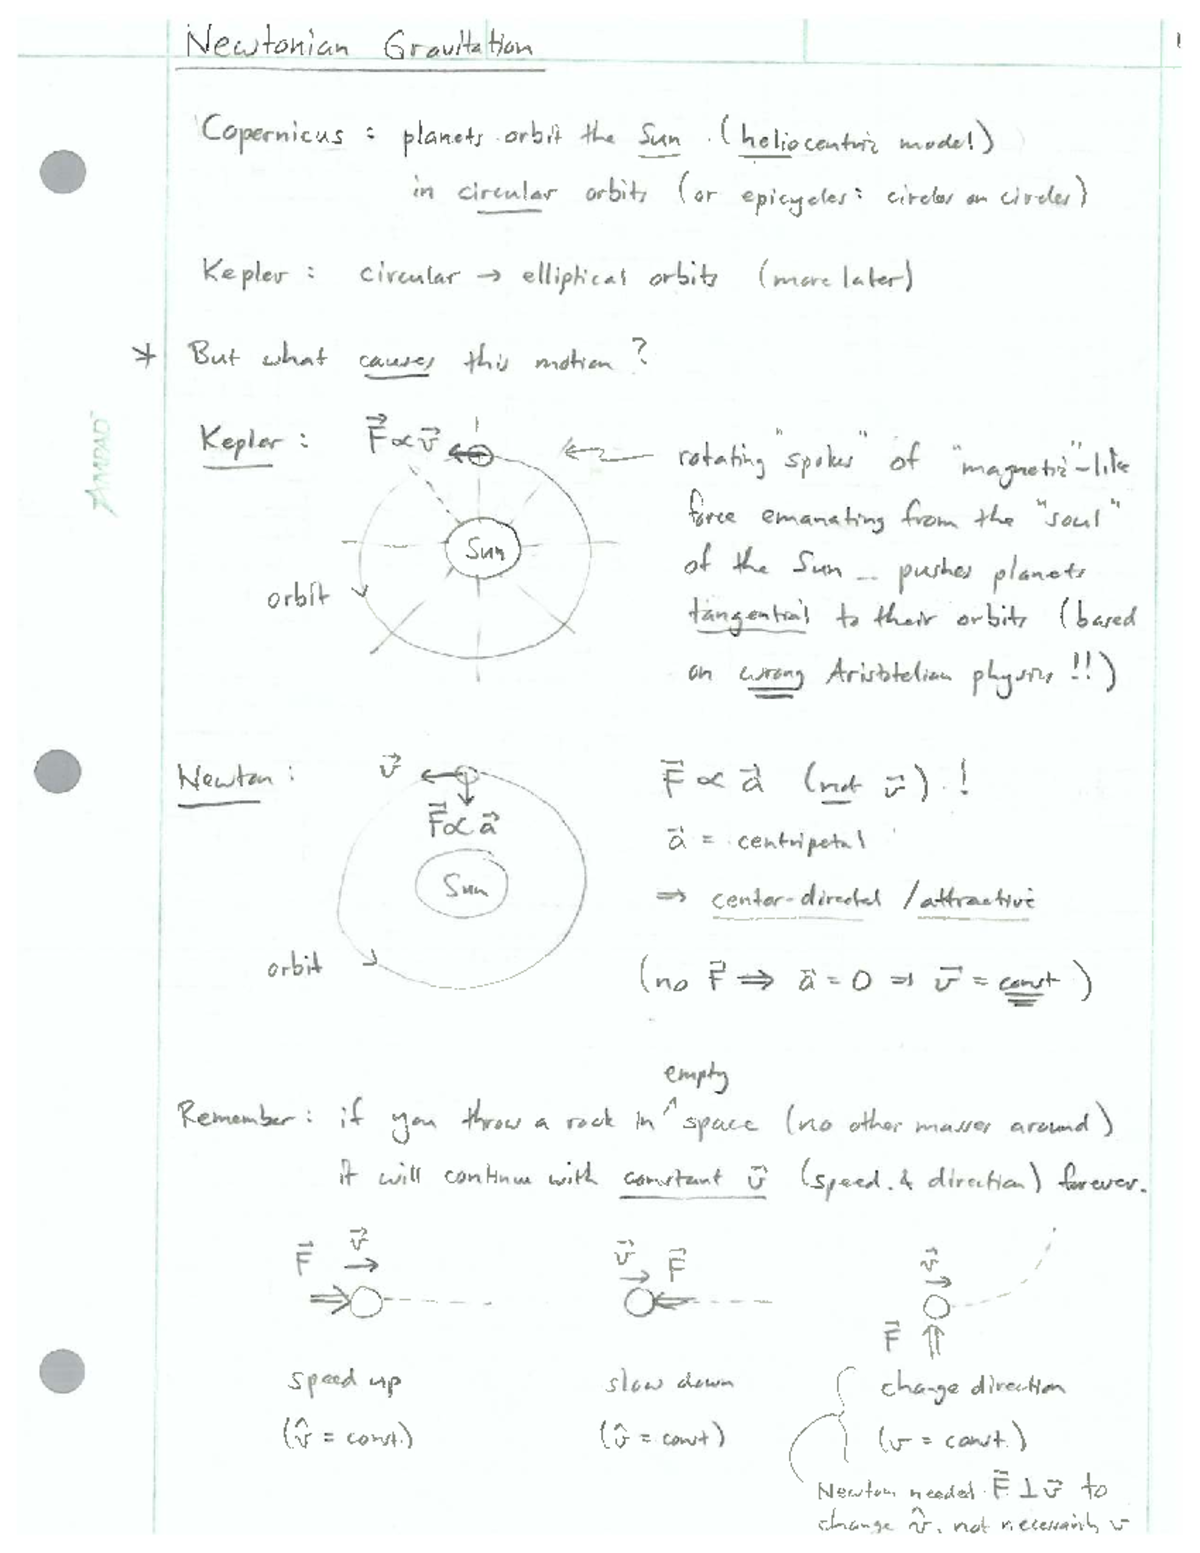 Newtonian Gravitation
1
Copernicus : planets orbit the Sun (heliocentric model)
in circular orbits (or epicycles: circles on circles)
Kepler : circular → elliptical orbits (more later)
* But what causes this motion ?
AMPAD
Kepler : F⃗ ∝ v⃗
Sun
orbit
rotating "spokes" of "magnetic"-like
force emanating from the "soul"
of the Sun … pushes planets
tangential to their orbits (based
on wrong Aristotelian physics !!)
Newton : v⃗
F⃗ ∝ a⃗
Sun
orbit
F⃗ ∝ a⃗ (not v⃗) !
a⃗ = centripetal
⇒ center-directed / attractive
(no F⃗ ⇒ a⃗ = 0 ⇒ v⃗ = const)
empty
Remember : if you throw a rock in ^ space (no other masses around)
it will continue with constant v⃗ (speed & direction) forever.
F⃗ v⃗
speed up
(v̂ = const.)
v⃗ F⃗
slow down
(v̂ = const)
v⃗
F⃗
change direction
(v = const.)
Newton needed F⃗ ⊥ v⃗ to
change v̂, not necessarily v